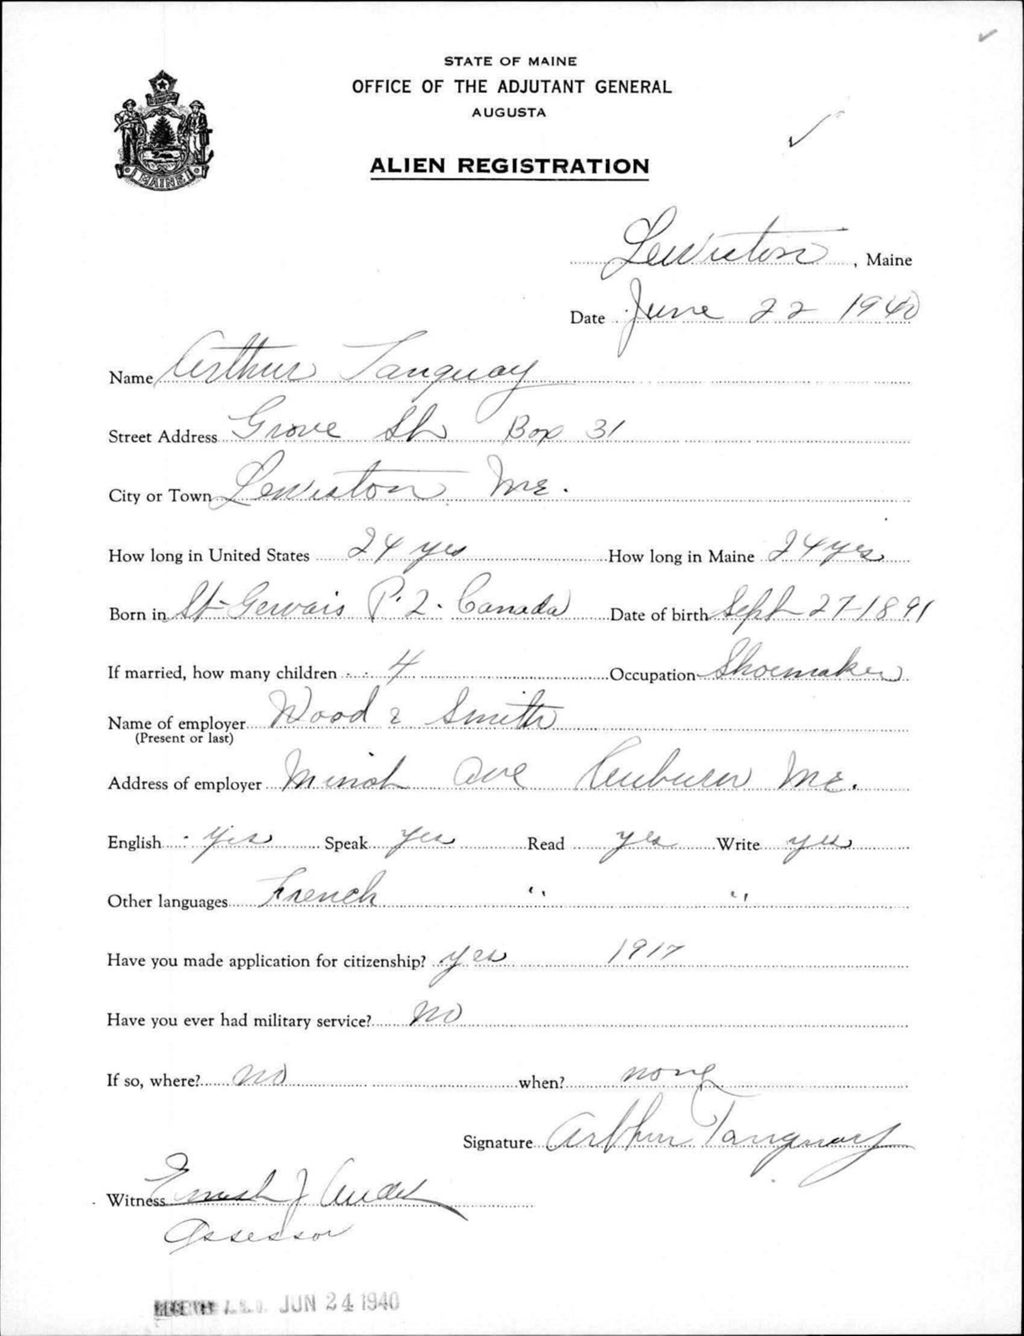 STATE OF MAINE
OFFICE OF THE ADJUTANT GENERAL
AUGUSTA
ALIEN REGISTRATION
MAINE
Lewiston, Maine
Date June 22 1940
Name Arthur Tanguay
Street Address Grove St Box 31
City or Town Lewiston Me.
How long in United States 24 yrs How long in Maine 24 yrs
Born in St-Gervais P.Q. Canada Date of birth Sept 27-1891
If married, how many children 4 Occupation Shoemaker
Name of employer Wood & Smith
(Present or last)
Address of employer Minot Ave Auburn Me.
English yes Speak yes Read yes Write yes
Other languages French " "
Have you made application for citizenship? yes 1917
Have you ever had military service? No
If so, where? no when? none
Signature Arthur Tanguay
Witness J Audet
Assessor
JUN 24 1940